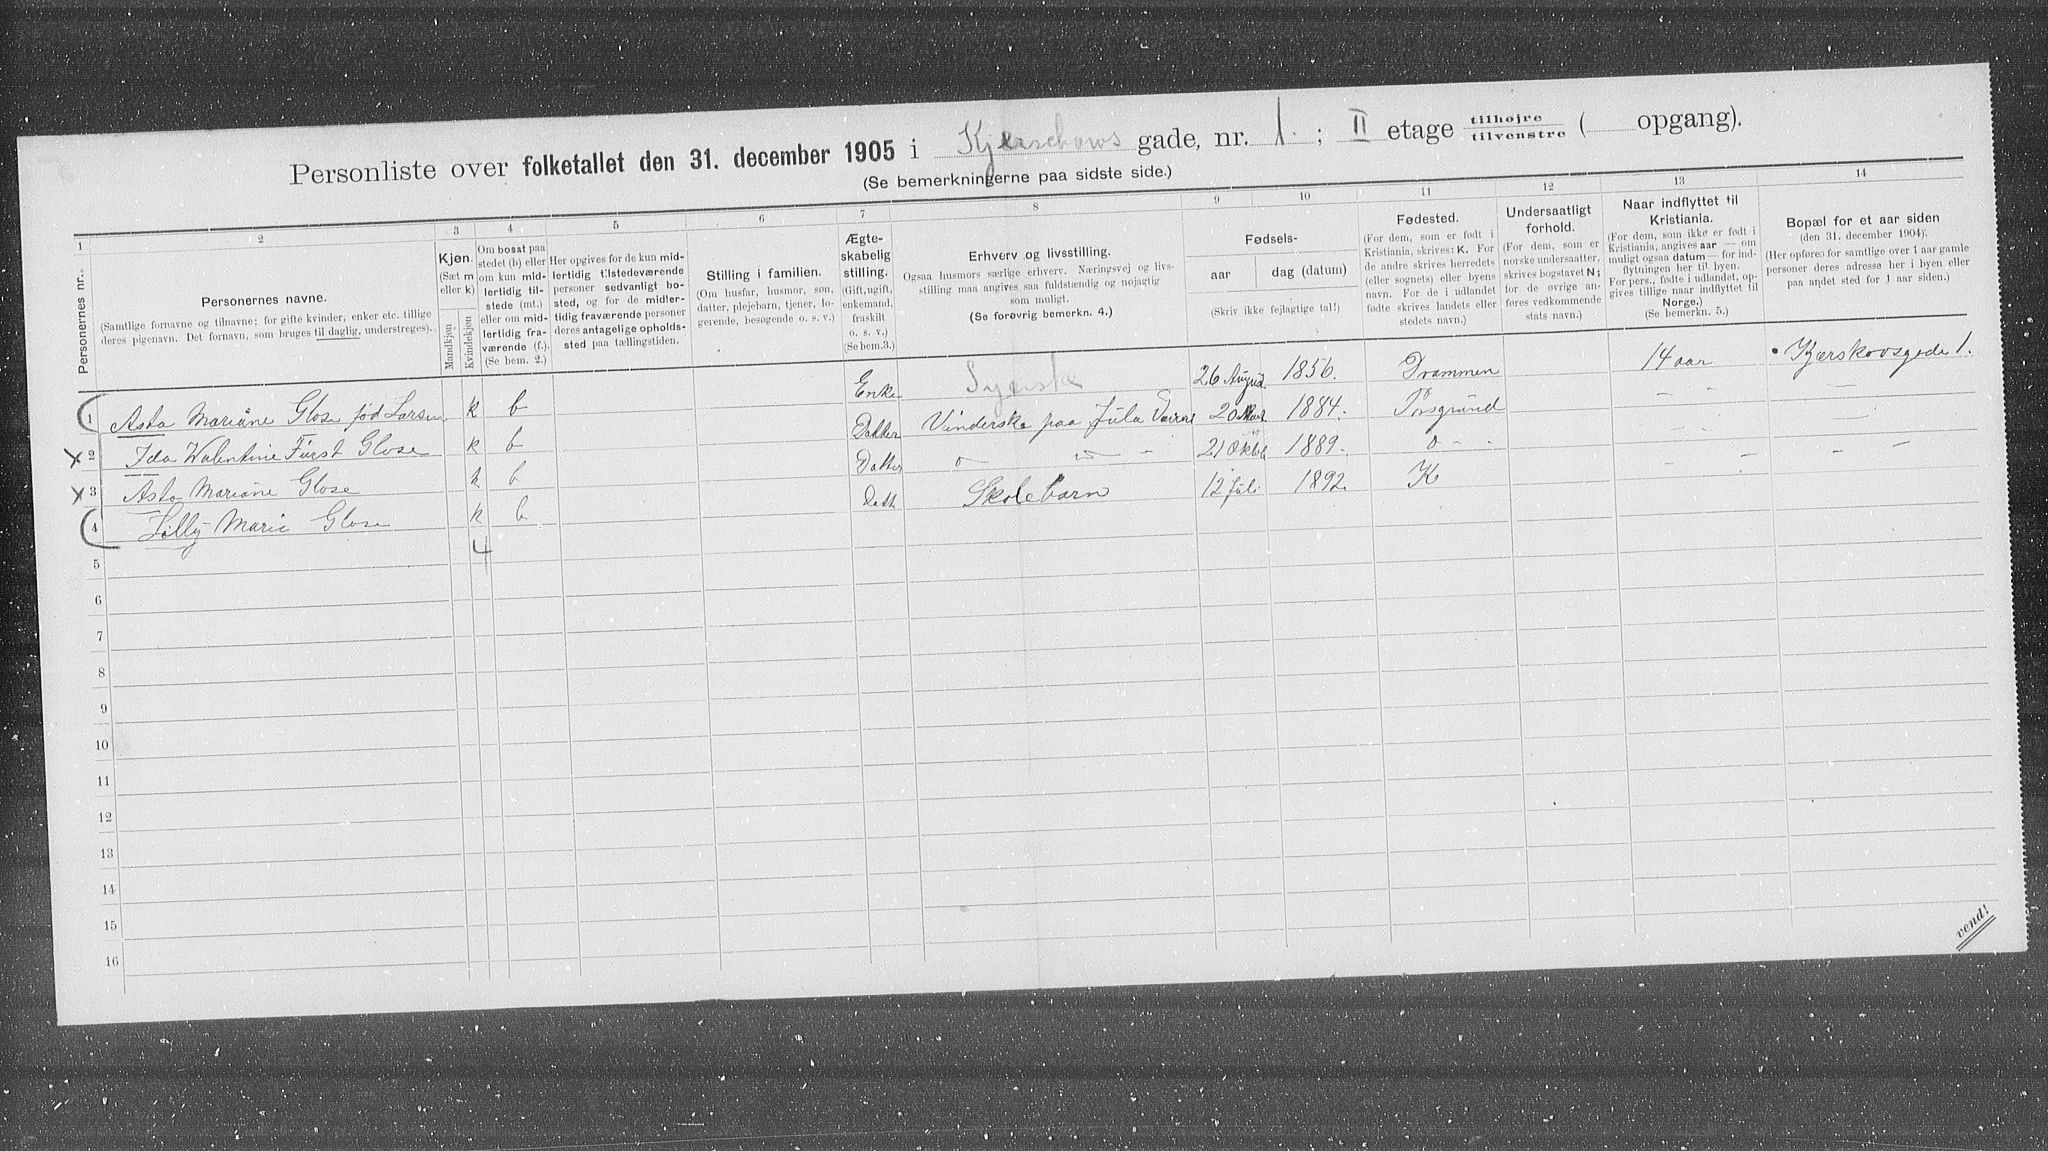 Personliste over folketallet den 31. december 1905 i Kjerschows gade, nr. 1. ; II etage tilhøjre / tilvenstre ( opgang).
(Se bemerkningerne paa sidste side.)
1 2 3 4 5 6 7 8 9 10 11 12 13 14
Personernes nr.
Personernes navne.
(Samtlige fornavne og tilnavne; for gifte kvinder, enker etc. tillige
deres pigenavn. Det fornavn, som bruges til daglig, understreges).
Kjøn.
(Sæt m
eller k)
Mandkjøn
Kvindekjøn
Om bosat paa
stedet (b) eller
om kun mid-
lertidig til-
stede (mt.)
eller om mid-
lertidig fra-
værende (f.).
(Se bem. 2.)
Her opgives for de kun mid-
lertidig tilstedeværende
personer sedvanligt bo-
sted, og for de midler-
tidig fraværende personer
deres antagelige opholds-
sted paa tællingstiden.
Stilling i familien.
(Om husfar, husmor, søn,
datter, plejebarn, tjener, lo-
gerende, besøgende o. s. v.)
Ægte-
skabelig
stilling.
(Gift, ugift,
enkemand,
fraskilt
o. s. v.)
(Se bem.3.)
Erhverv og livsstilling.
Ogsaa husmors særlige erhverv. Næringsvej og livs-
stilling maa angives saa fuldstændig og nøjagtig
som muligt.
(Se forøvrig bemerkn. 4.)
Fødsels-
aar dag (datum)
(Skriv ikke fejlagtige tal!)
Fødested.
(For dem, som er født i
Kristiania, skrives: K. For
de andre skrives herredets
(eller sognets) eller byens
navn. For de i udlandet
fødte skrives landets eller
stedets navn.)
Undersaatligt
forhold.
(For dem, som er
norske undersaatter,
skrives bogstavet N;
for de øvrige an-
føres vedkommende
stats navn.)
Naar indflyttet til
Kristiania.
(For dem, som ikke er født i
Kristiania, angives aar — om
muligt ogsaa datum — for ind-
flytningen her til byen.
For pers., fødte i udlandet, op-
gives tillige naar indflyttet til
Norge,)
(Se bemerkn. 5.)
Bopæl for et aar siden
(den 31. december 1904).
(Her opføres for samtlige over 1 aar gamle
personer deres adresse her i byen eller
paa andet sted for 1 aar siden.)
1 Asta Mariane Glose fød Larsen k b Enke Syerske 26 August 1856. Drammen 14 aar Kjerskovsgade 1.
2 Ida Walentine Fürst Glose k b Datter Vinderske paa Jula 20 1884. Porsgrund
3 Asta Mariane Glose k b Datter 21 Oktb 1889.
4 Lilly Marie Glose k b Datt Skolebarn 12 Juli 1892. K
4
5
6
7
8
9
10
11
12
13
14
15
16
vend!